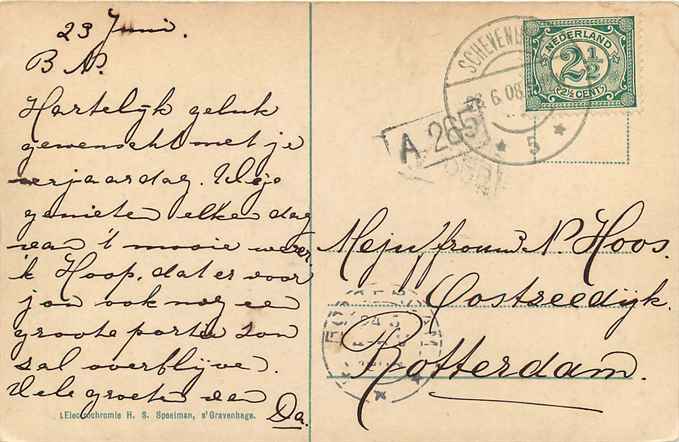 23 Juni.
B N.
Hartelijk geluk
gewenscht met je
verjaardag. Weje
genieten elke dag
van 't mooie weer
'k Hoop, dat er voor
jou ook nog ee
groote portie zon
zal overblijve.
Vele groeten van
Da.
Electrochromie H. S. Speelman, s'Gravenhage.
NEDERLAND
2 1/2
(2½ CENT)
SCHEVEN
6.08
5
A 265
Mejuffrouw N Hoos.
Oostzeedijk.
Rotterdam.